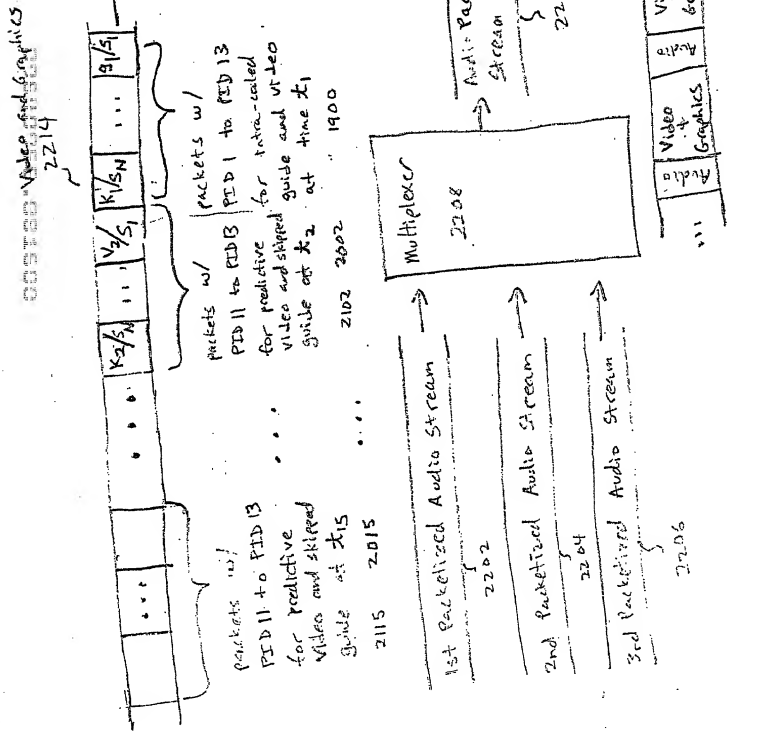 Video and Graphics
2214
K2/SN
...
V2/S1
K1/SN
...
g1/S1
packets w/
PID 11 to PID 13
for predictive
video and skipped
guide at t15
2115 2015
...
...
packets w/
PID 11 to PID 13
for predictive
video and skipped
guide at t2
2102 2002
packets w/
PID 1 to PID 13
for intra-coded
guide and video
at time t1
1900
1st Packetized Audio Stream
2202
2nd Packetized Audio Stream
2204
3rd Packetized Audio Stream
2206
Multiplexer
2208
Stream
22
Video
+
Graphics
...